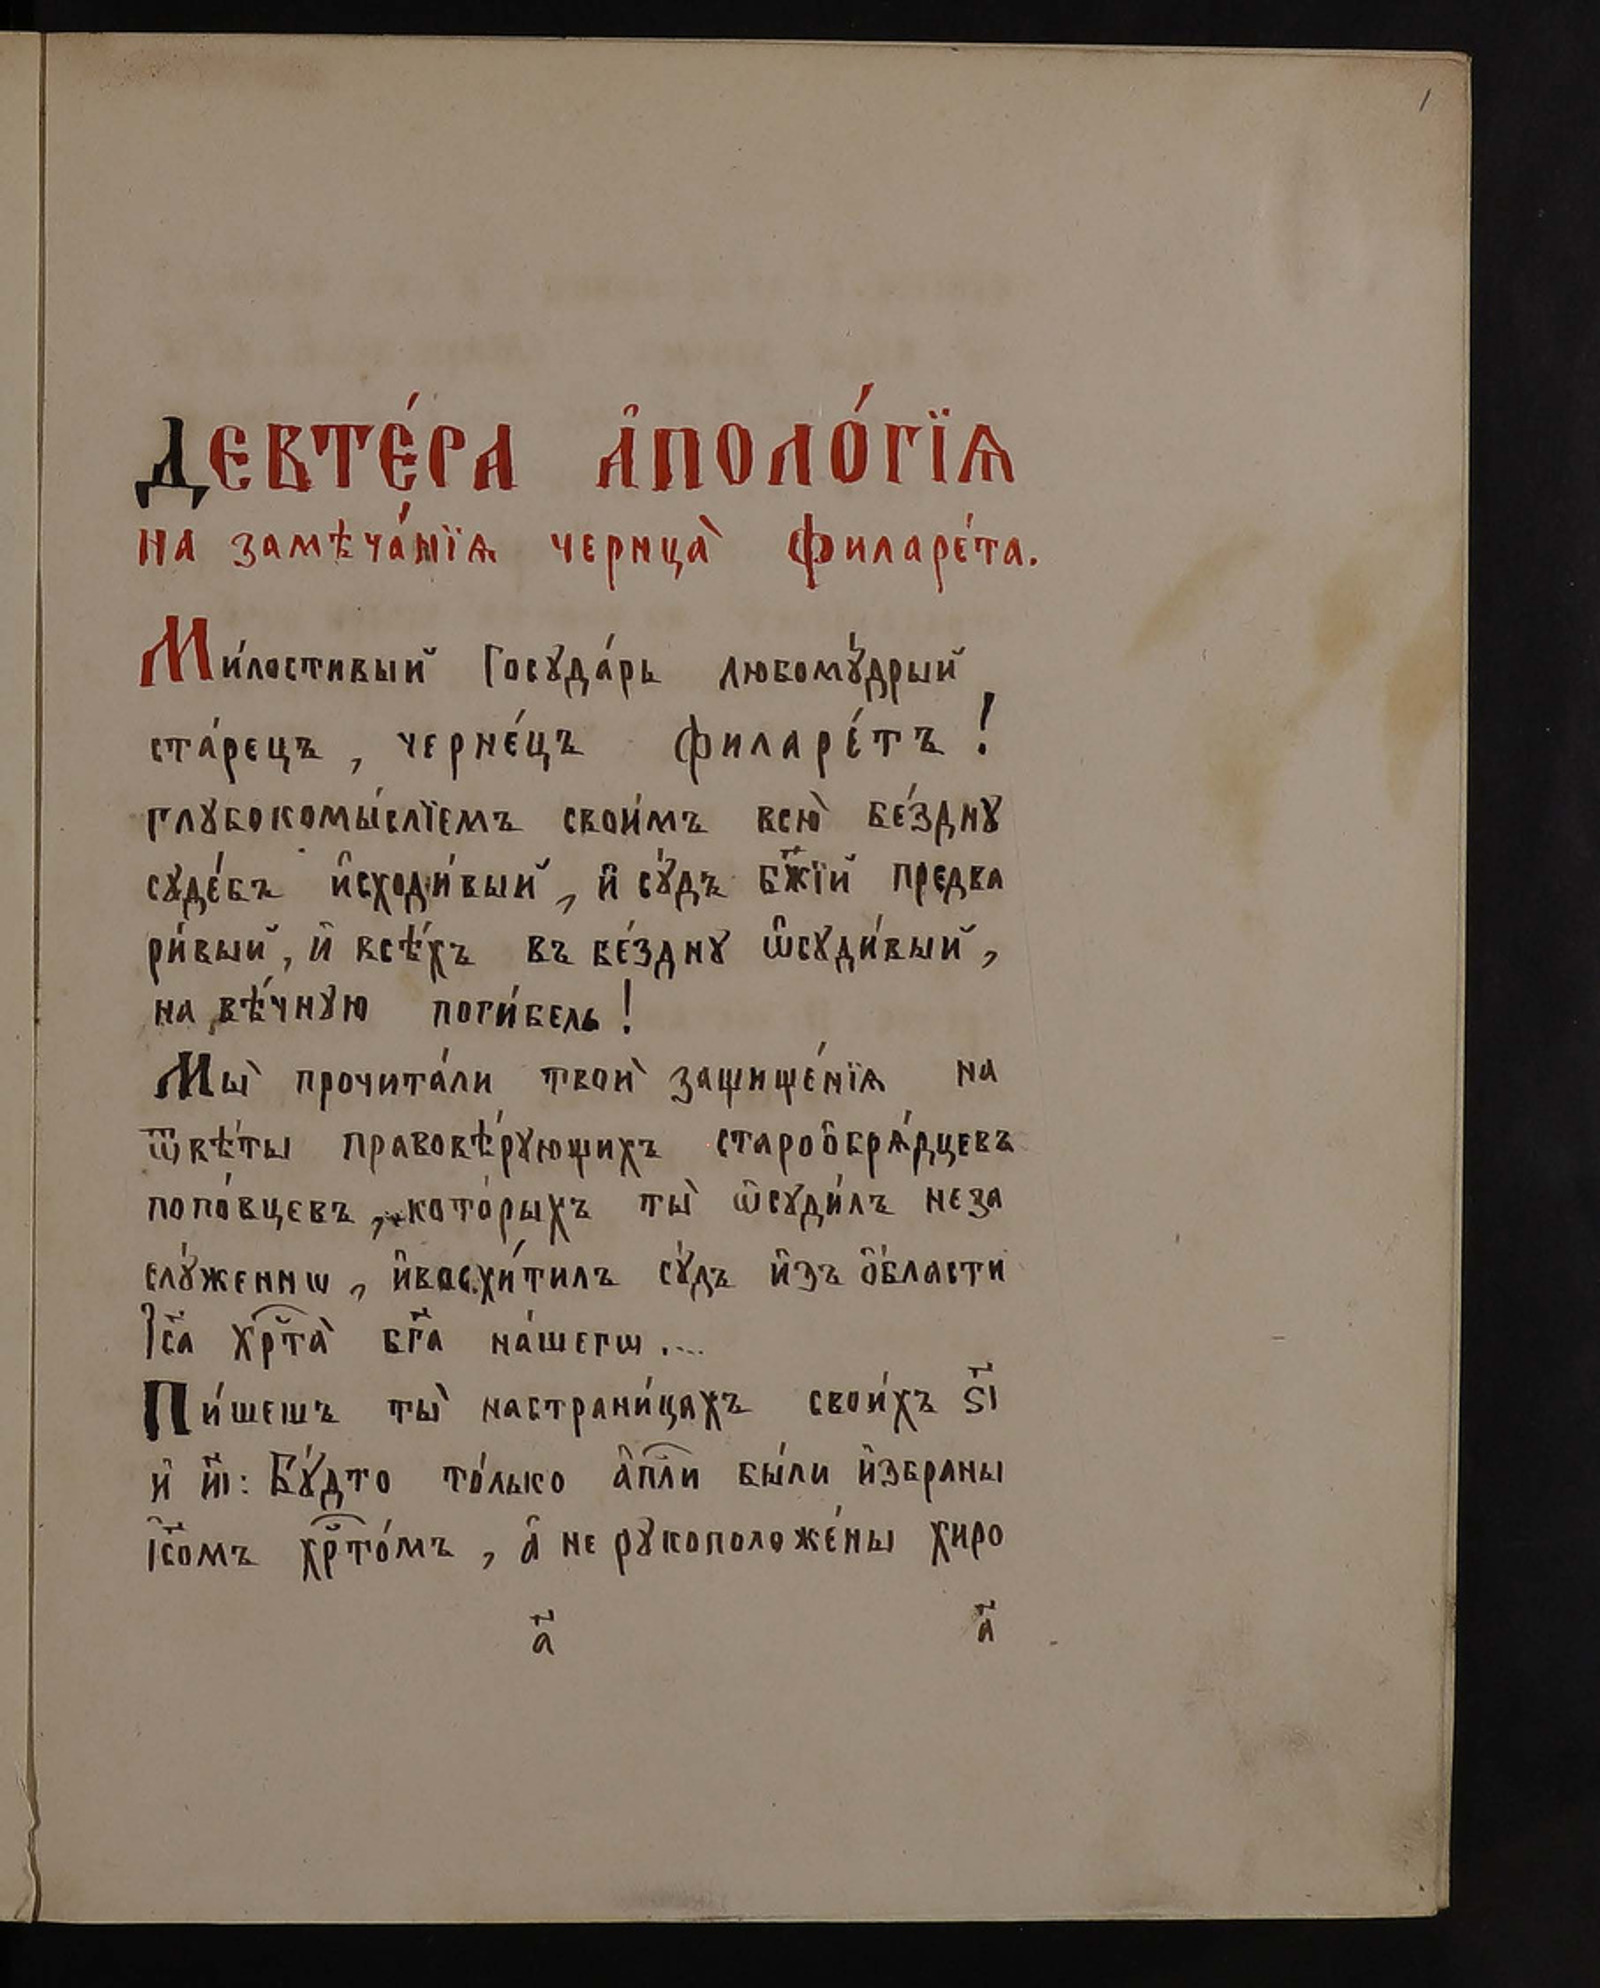 1
Девте́ра а҆поло́гїѧ
на замѣча́нїѧ чернца̀ Филаре́та.
Ми́лостивый Госуда́рь любому́дрый
ста́рецъ, черне́цъ Филаре́тъ!
глубокомы́слїемъ свои́мъ всю̀ бе́здну
суде́бъ и҆сходи́вый, и҆ су́дъ бж҃їй предва
ри́вый, и҆ всѣ́хъ въ бе́здну ѡ҆суди́вый,
на вѣ́чную поги́бель!
Мы̀ прочита́ли твоѝ защище́нїѧ на
ѿвѣ́ты правовѣ́рующихъ староо҆брѧ́дцевъ
попо́вцевъ, кото́рыхъ ты̀ ѡ҆суди́лъ неза
слу́женнѡ, и҆восхи́тилъ су́дъ и҆зъ ѻ҆́бласти
І҆с҃а хрⷭ҇та̀ бг҃а на́шегѡ....
Пи́шешъ ты̀ настрани́цахъ свои́хъ ѕ҃і
и҆ и҃і: Бу́дто то́лько а҆пⷭ҇ли бы́ли и҆збраны
і҆с҃омъ хрⷭ҇то́мъ, а҆ не рукоположе́ны хиро
а҃ а҃